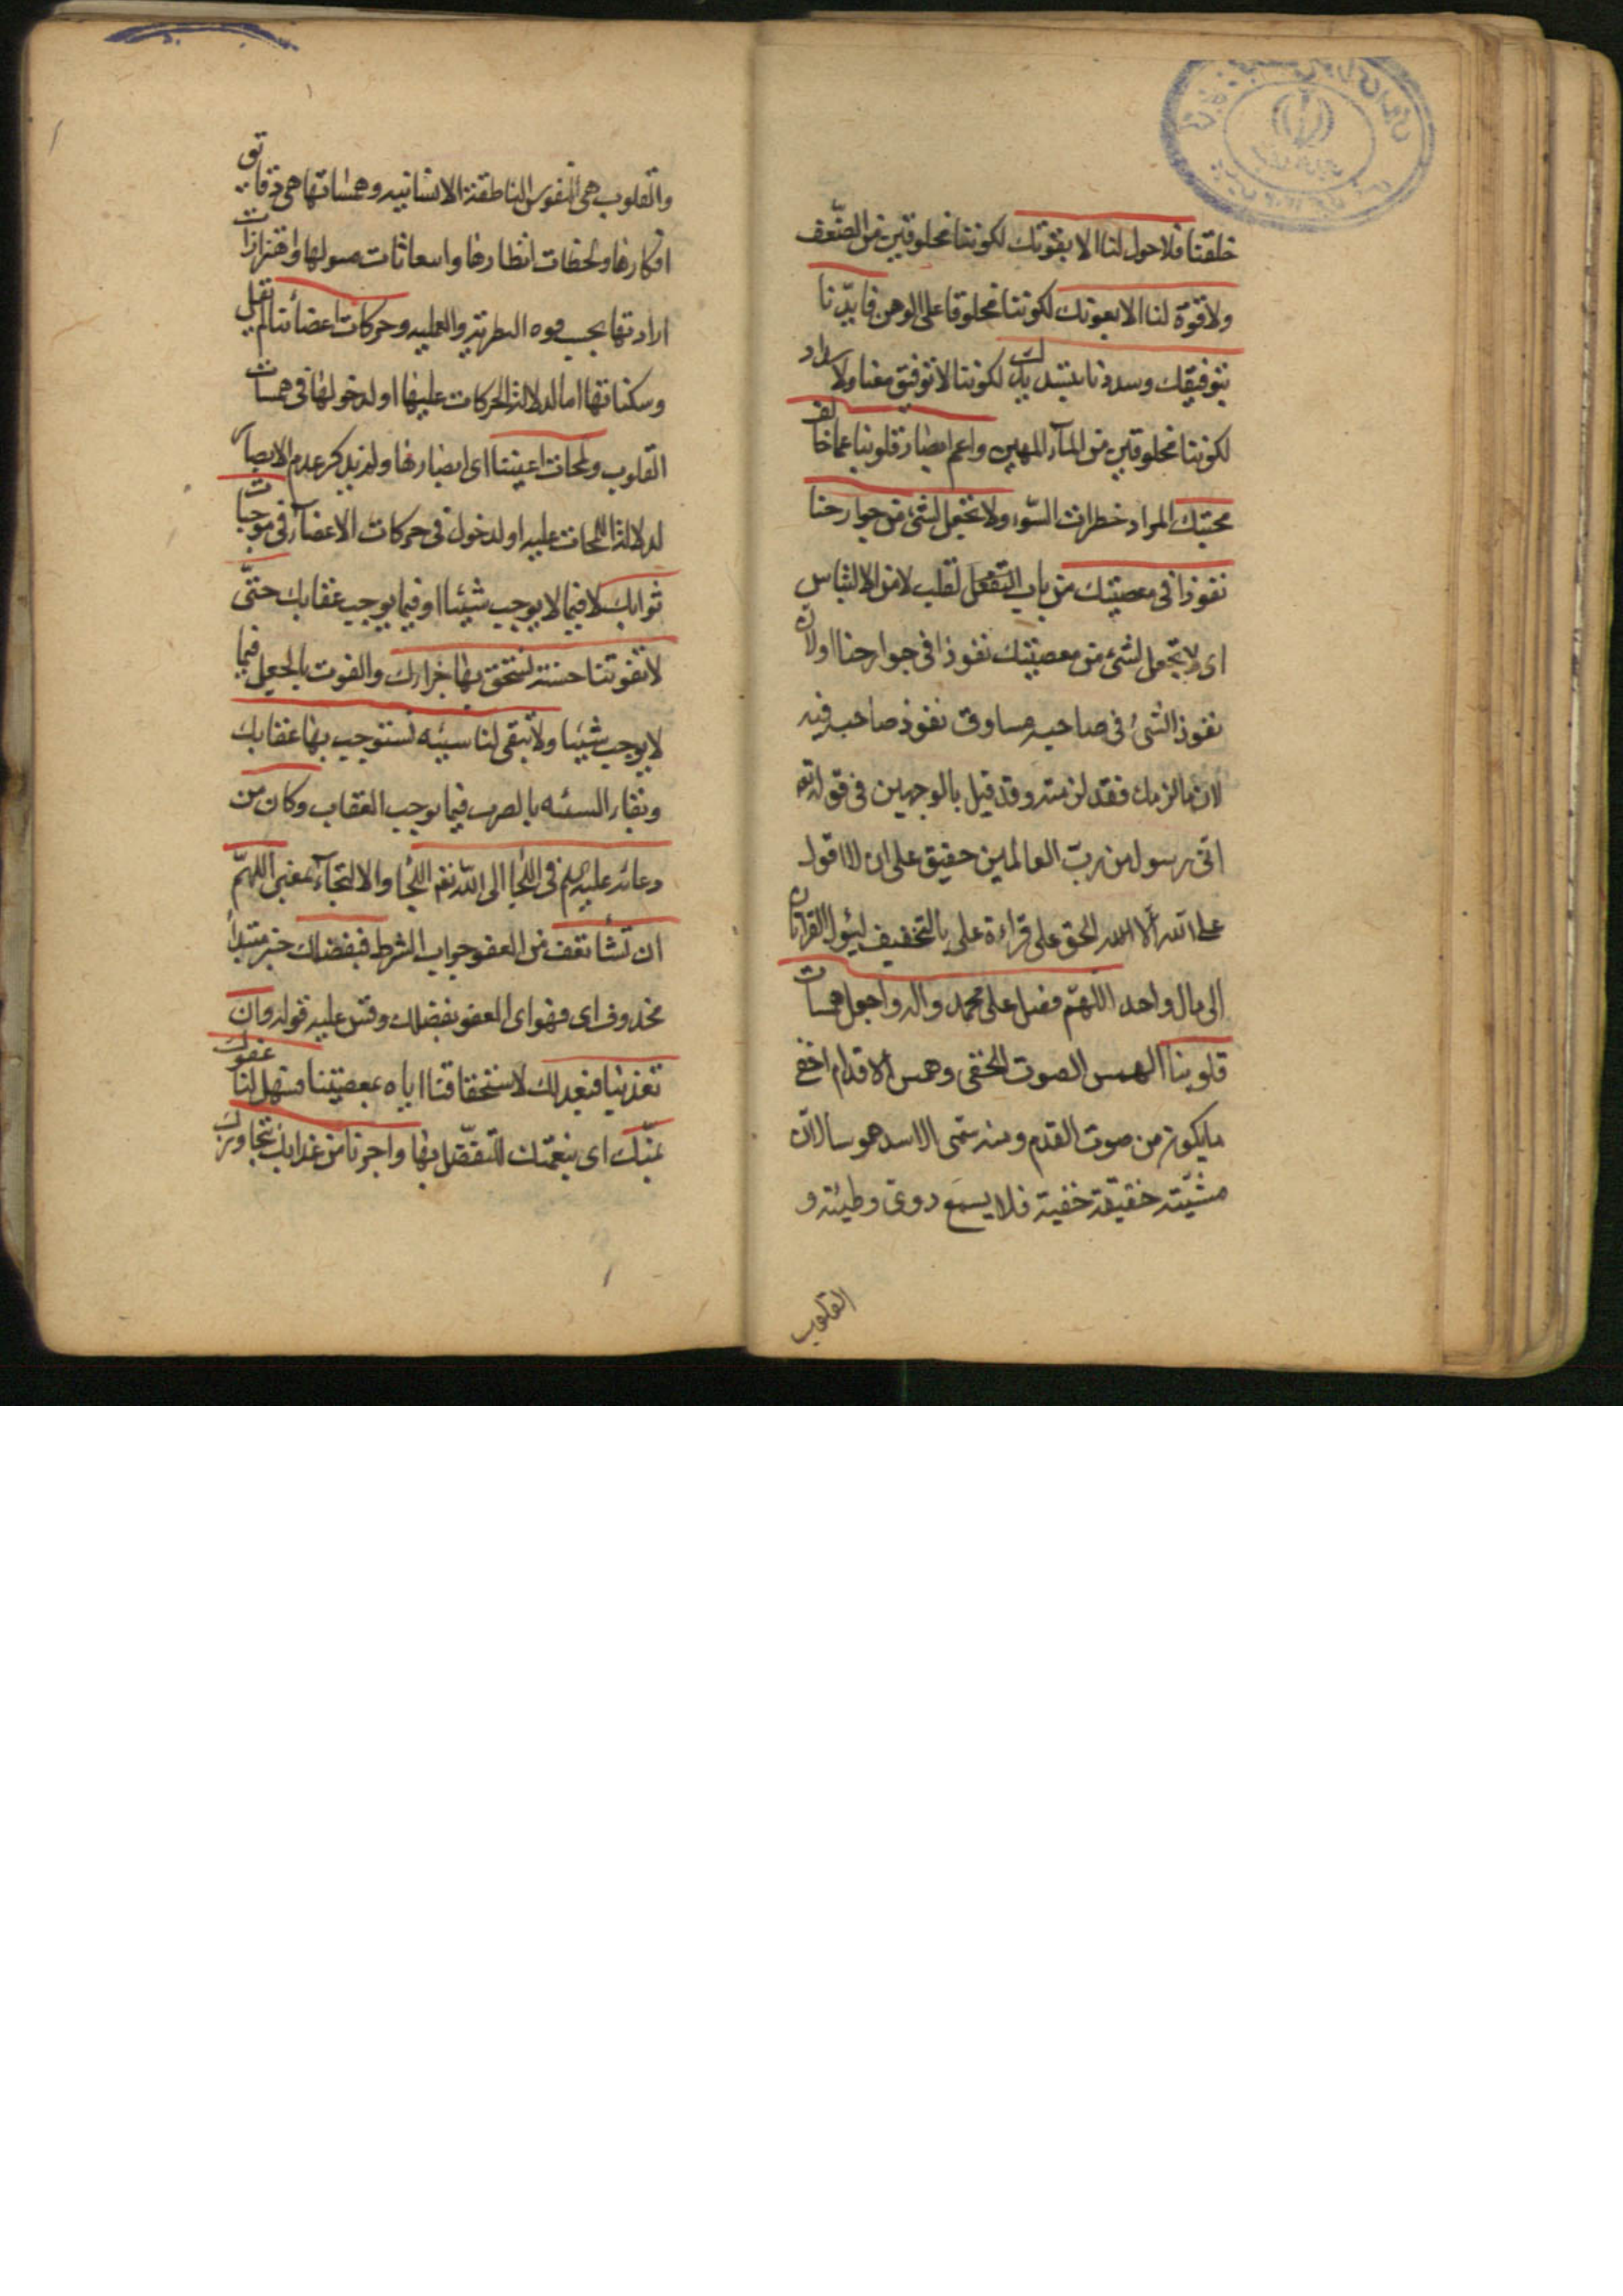 خلقتنا فلا حول لنا الا بقوتك لكوننا مخلوقين من الضعف
ولا قوة لنا الا بعونك لكوننا مخلوقا على الوهن فايدنا
بتوفيقك وسددنا بتسديدك لكوننا لا توفيق معنا ولا سداد
لكوننا مخلوقين من المآء المهين واعم ابصار قلوبنا عما خالف
محبتك المراد خطرات السوء ولا تجعل لشئ من جوارحنا
نفوذا في معصيتك من باب لقلب لا من الالتباس
اي لا تجعل لشئ من معصيتك نفوذا في جوارحنا اولان
نفوذ الشئ في صاحبه مساوق نفوذ صاحبه فيه
لان ما لزمك فقد لزمته وقد قيل بالوجهين في قوله تعه
اني رسول من رب العالمين حقيق على ان لا اقول
على الله الا الحق على قراءة على بالتخفيف ليئول القراءتان
الى مال واحد اللهم فصل على محمد واله واجعل همسات
قلوبنا الهمس الصوت الخفي وهمس الاقدام اخفى
ما يكون من صوت القدم ومنه سمى الاسد هموسا لان
مشيته خفيفة خفية فلا يسمع دوى وطيئه و
القلوب
والقلوب هي النفوس الناطقة الانسانيه وهمساتها هي دقائق
افكارها ولحظات انظارها وانبعاثات ميولها واهتزازات
ارادتها بحسب قوه النظريه والعمليه وحركات اعضائنا لم يقل
وسكناتها اما لدلالة الحركات عليها او لدخولها في همسات
القلوب ولمحات اعيننا اي ابصارها ولم يذكر عدم الابصار
لدلالة اللمحات عليه او لدخول في حركات الاعضاء في موجبات
ثوابك لا فيما لا يوجب شيئا او فيما يوجب عقابك حتى
لا تفوتنا حسنة نستحق بها جزاءك والفوت بالجعل فيما
لا يوجب شيئا ولا تبقى لنا سيئه نستوجب بها عقابك
وبقاء السيئه بالصرف فيما يوجب العقاب وكان من
دعائه عليه السلم في اللجا الى الله تعه اللجا والالتجاء بمعنى اللهم
ان تشأ تعف من العفو جواب الشرط فبفضلك خبر مبتدأ
محذوف اي فهو اي العفو بفضلك وقس عليه قوله وان
تعذبنا فبعدلك لاستحقاقنا اياه بمعصيتنا فسهل لنا عفوك
بمنك اي بنعمتك للتفضل بها واجرنا من عذابك بتجاوزك